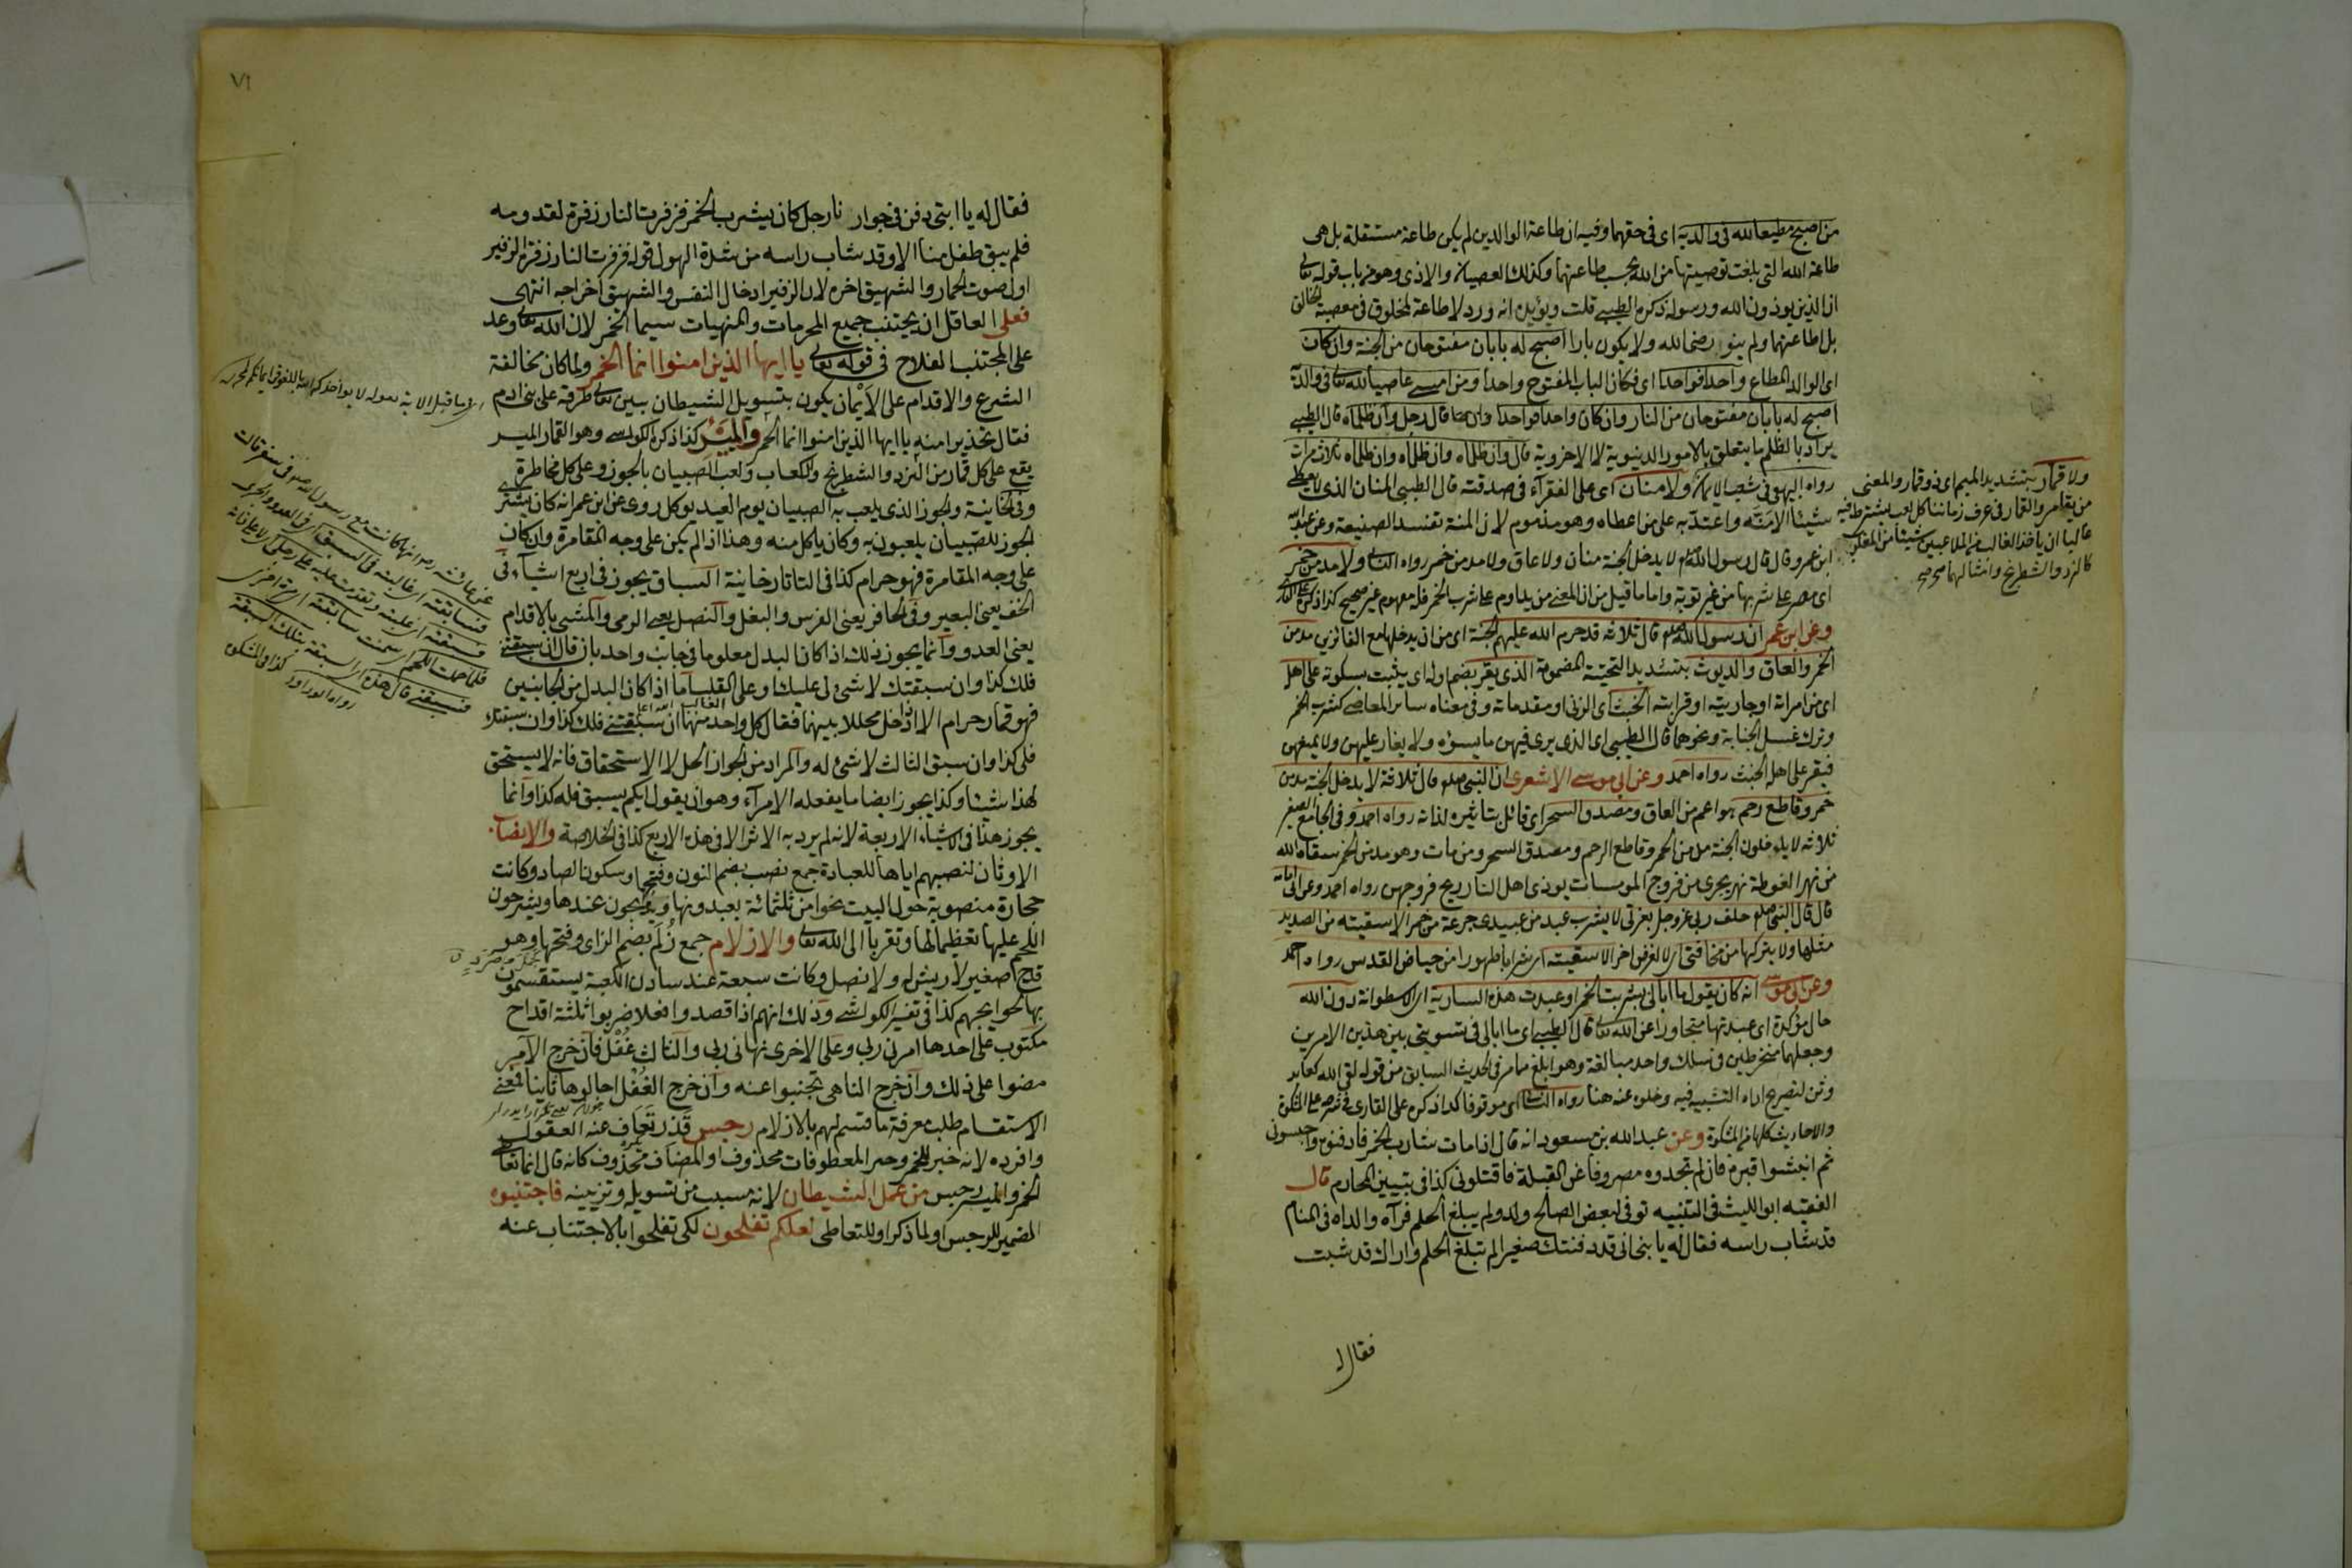 من اصبح مطيعا لله فى والديه اى فى حقهما وفيه ان طاعة الوالدين لم يكن طاعة مستقلة بل هى
طاعة الله التى بلغت توصيتها من الله بحسب طاعتهما وكذلك العصيان والاذى وهو من باب قوله تعالى
ان الذين يوذون الله ورسوله ذكره الطيبى قلت ويؤيده انه ورد لا طاعة لمخلوق فى معصية الخالق
بل اطاعتهما ولم ينو رضى الله ولا يكون بارا اصبح له بابان مفتوحان من الجنة وان كان
اى الوالد المطاع واحدا فواحدا اى فكان الباب المفتوح واحدا ومن امسى عاصيا لله تعالى فى والديه
اصبح له بابان مفتوحان من النار وان كان واحدا فواحدا قال رجل وان ظلماه قال الطيبى
يراد بالظلم ما يتعلق بالامور الدنيوية لا الاخروية قال وان ظلماه وان ظلماه وان ظلماه ثلاث مرات
رواه البيهقى فى شعب الايمان ولا منان اى على الفقرآء فى صدقته قال الطيبى المنان الذى لا يعطى
شيئا الا منّه واعتدّ به على من اعطاه وهو مذموم لان المنة تفسد الصنيعة وعن عبد الله
ابن عمرو قال قال رسول الله لا يدخل الجنة منان ولا عاق ولا مدمن خمر رواه النسائى ولا مدمن خمر
اى مصر على شربها من غير توبة واما ما قيل من ان المعنى من يداوم على شرب الخمر فله مفهوم غير صحيح كذا ذكره على القارى
وعن ابن عمر ان رسول الله قال ثلاثة قد حرم الله عليهم الجنة اى من ان يدخلها مع الفائزين مدمن
الخمر والعاق والديوث بتشديد التحتية المضمومة الذى يقر بضم اوله اى يثبت بسكوته على اهله
اى من امراته او جاريته او قرابته الخبث اى الزنى او مقدماته وفى معناه سائر المعاصى كشرب الخمر
وترك غسل الجنابة ونحوهما قال الطيبى اى الذى يرى فيهن ما يسؤه ولا يغار عليهن ولا يمنعهن
فيقر على اهله الخبث رواه احمد وعن ابى موسى الاشعرى ان النبى صلعم قال ثلاثة لا يدخل الجنة مدمن
خمر وقاطع رحم هو اعم من العاق ومصدق السحر اى قائل بتاثيره لذاته رواه احمد وفى الجامع الصغير
ثلاثة لا يدخلون الجنة مدمن الخمر وقاطع الرحم ومصدق السحر ومن مات وهو مدمن الخمر سقاه الله
من نهر الغوطة نهر يجرى من فروج المومسات يوذى اهل النار ريح فروجهن رواه احمد وعن ابى امامة
قال قال النبى صلعم حلف ربى عز وجل بعزتى لا يشرب عبد من عبيدى جرعة من خمر الا سقيته من الصديد
مثلها ولا يتركها من مخافتى اى لا لغرض اخر الا سقيته اى شرابا طهورا من حياض القدس رواه احمد
وعن ابى موسى انه كان يقول ما ابالى شربت الخمر او عبدت هذه السارية اى الاسطوانة دون الله
حال مؤكدة اى عبدتها متجاوزا عن الله تعالى قال الطيبى اى ما ابالى فى تسويتى بين هذين الامرين
وجعلهما منخرطين فى سلك واحد مبالغة وهو ابلغ مما مر فى الحديث السابق من قوله لقى الله كعابد
وثن لتصريح اداة التشبيه فيه وخلوه عنه هنا رواه النسائى اى موقوفا كذا ذكره على القارى فى شرحه على المشكوة
والاحاديث كلها من المشكوة وعن عبد الله بن مسعود انه قال اذا مات شارب الخمر فادفنوه واحبسونى
ثم انبشوا قبره فان لم تجدوه مصروفا عن القبلة فاقتلونى كذا فى تبيين المحارم قال
الفقيه ابو الليث فى التنبيه توفى لبعض الصالح ولد ولم يبلغ الحلم فرآه والداه فى المنام
قد شاب راسه فقال له يا بنى انى قد دفنتك صغيرا لم تبلغ الحلم واراك قد شبت
ولا قمار بتشديد الميم اى ذو قمار والمعنى
من يقامر والقمار فى عرف زماننا كل لعب يشترط فيه
غالبا ان ياخذ الغالب من الملاعبين شيئا من المغلوب
كالنرد والشطرنج وامثالهما
فقال له
٧١
فقال له يا ابتى دفن فى جوارنا رجل كان يشرب الخمر فزفرت النار زفرة لقدومه
فلم يبق طفل منا الا وقد شاب راسه من شدة الهول قوله فزفرت النار زفرة الزفير
اول صوت الحمار والشهيق اخره لان الزفير ادخال النفس والشهيق اخراجه انتهى
فعلى العاقل ان يجتنب جميع المحرمات والمنهيات سيما الخمر لان الله تعالى وعد
على المجتنب الفلاح فى قوله تعالى يا ايها الذين امنوا انما الخمر ولما كان مخالفة
الشرع والاقدام على الأيمان يكون بتسويل الشيطان بين تعالى طرقه على بنى ادم
فقال تحذيرا منه يا ايها الذين امنوا انما الخمر والميسر كذا ذكره الكواشى وهو القمار الميسر
يقع على كل قمار من النرد والشطرنج والكعاب ولعب الصبيان بالجوز وعلى كل مخاطرة
وفى الخانية والجوز الذى يلعب به الصبيان يوم العيد يوكل روى عن ابن عمر انه كان يشترى
الجوز للصبيان يلعبون به وكان ياكل منه وهذا اذا لم يكن على وجه المقامرة وان كان
على وجه المقامرة فهو حرام كذا فى التاتارخانية السباق يجوز فى اربع اشيآء فى
الخف يعنى البعير وفى الحافر يعنى الفرس والبغل والنصل يعنى الرمى والمشى بالاقدام
يعنى العدو وانما يجوز ذلك اذا كان البدل معلوما فى جانب واحد بان قال ان سبقتنى
فلك كذا وان سبقتك لا شئ لى عليك وعلى القلب اما اذا كان البدل من الجانبين
فهو قمار حرام الا اذا ادخل محللا بينهما فقال كل واحد منهما ان سبقتنى فلك كذا وان سبقتك
فلى كذا وان سبق الثالث لا شئ له والمراد من الجواز الحل لا الاستحقاق فانه لا يستحق
لهذا شيئا وكذا يجوز ايضا ما يفعله الامرآء وهو ان يقول ايكم يسبق فله كذا وانما
يجوز هذا فى الاشياء الاربعة لانه لم يرد به الاثر الا فى هذه الاربع كذا فى الخلاصة والانصاب
الاوثان لنصبهم اياها للعبادة جمع نصب بضم النون وفتحها وسكون الصاد وكانت
حجارة منصوبة حول البيت نحوا من ثلثمائة يعبدونها ويذبحون عندها ويشرحون
اللحم عليها تعظيما لها وتقربا الى الله تعالى والازلام جمع زلم بضم الزاى وفتحها وهو
قدح صغير لا ريش له ولا نصل وكانت سبعة عند سادن الكعبة يستقسمون
بها لحوايجهم كذا فى تفسير الكواشى وذلك انهم اذا قصدوا فعلا ضربوا ثلثة اقداح
مكتوب على احدها امرنى ربى وعلى الاخرى نهانى ربى والثالث غُفْل فان خرج الآمر
مضوا على ذلك وان خرج الناهى تجنبوا عنه وان خرج الغُفْل اجالوها ثانيا فمعنى
الاستقسام طلب معرفة ما قسم لهم بالازلام رجس قذر تعاف عنه العقول
وافرده لانه خبر للخمر وخبر المعطوفات محذوف او المضاف محذوف كانه قال انما تعاطى
الخمر والميسر رجس من عمل الشيطان لانه مسبب من تسويله وتزيينه فاجتنبوه
الضمير للرجس او لما ذكر او للتعاطى لعلكم تفلحون لكى تفلحوا بالاجتناب عنه
عن عائشة انها كانت مع رسول الله فى سفر قالت
فسابقته
فسبقته
فلما حملت اللحم سابقته
فسبقنى قال هذه بتلك السبقة
رواه ابو داود كذا فى المشكوة